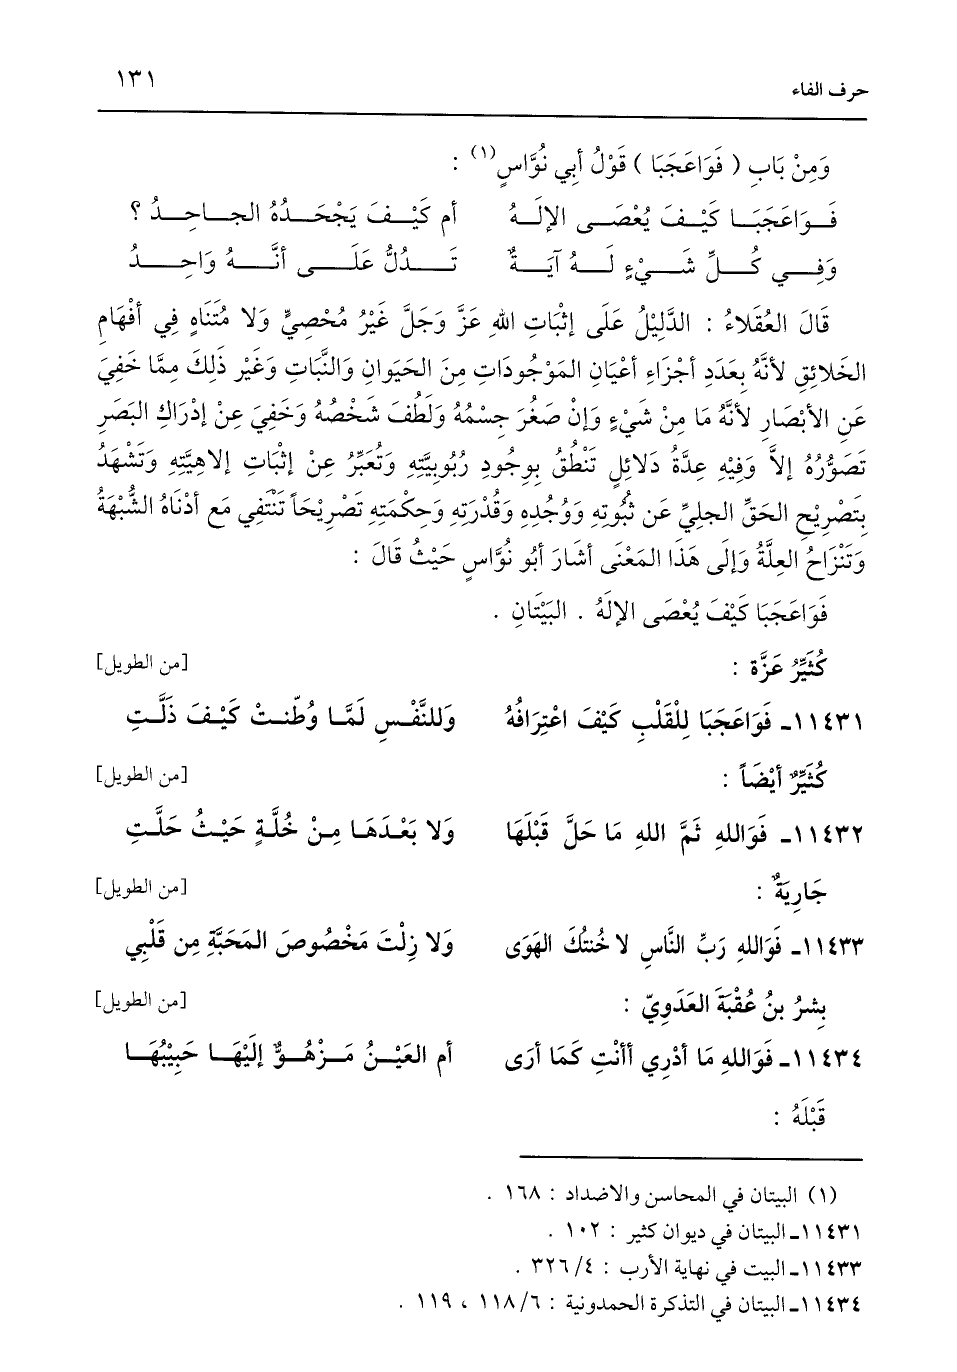 حرف الفاء ١٣١
وَمِنْ بَابِ ( فَوَاعَجَبَا ) قَوْلُ أَبِي نُوَّاسٍ(١) :
فَوَاعَجَبَا كَيْفَ يُعْصَى الإِلَهُ أم كَيْفَ يَجْحَدُهُ الجَاحِدُ ؟
وَفِي كُلِّ شَيْءٍ لَهُ آيَةٌ تَدُلُّ عَلَى أنَّهُ وَاحِدُ
قَالَ العُقَلاءُ : الدَّلِيْلُ عَلَى إثْبَاتِ اللهِ عَزَّ وَجَلَّ غَيْرُ مُحْصِيٍّ وَلا مُتَنَاهٍ فِي أفْهَامِ
الخَلائِقِ لأنَّهُ بِعَدَدِ أجْزَاءِ أعْيَانِ المَوْجُودَاتِ مِنَ الحَيوانِ وَالنَّبَاتِ وَغَيْرِ ذَلِكَ مِمَّا خَفِيَ
عَنِ الأبْصَارِ لأنَّهُ مَا مِنْ شَيْءٍ وَإنْ صَغُرَ جِسْمُهُ وَلَطُفَ شَخْصُهُ وَخَفِيَ عِنْ إدْرَاكِ البَصَرِ
تَصَوُّرُهُ إلاَّ وَفِيْهِ عِدَّةُ دَلائِلٍ تَنْطُقُ بِوجُودِ رُبُوبِيَّتِهِ وَتُعَبِّرُ عِنْ إثْبَاتِ إلاهِيَّتِهِ وَتَشْهَدُ
بِتَصْرِيْحِ الحَقِّ الجليِّ عَن ثبُوتِهِ وَوُجُدِهِ وَقُدْرَتِهِ وَحِكْمَتِهِ تَصْرِيْحَاً تَنْتَفِي مَع أدْنَاهُ الشُّبْهَةُ
وَتَنْزَاحُ العِلَّةُ وَإلَى هَذَا المَعْنَى أشَارَ أبُو نُوَّاسٍ حَيْثُ قَالَ :
فَوَاعَجَبَا كَيْفَ يُعْصَى الإلَهُ . البَيْتَانِ .
كُثَيِّرُ عَزَّة : [من الطويل]
١١٤٣١ـ فَوَاعَجَبَا لِلْقَلْبِ كَيْفَ اعْتِرَافُهُ وَللنَّفْسِ لَمَّا وُطّنتْ كَيْفَ ذَلَّتِ
كُثَيِّرٌ أيْضَاً : [من الطويل]
١١٤٣٢ـ فَوَاللهِ ثَمَّ اللهِ مَا حَلَّ قَبْلَهَا وَلا بَعْدَهَا مِنْ خُلَّةٍ حَيْثُ حَلَّتِ
جَارِيَةٌ : [من الطويل]
١١٤٣٣ـ فَوَاللهِ رَبِّ النَّاسِ لا خُنتُكَ الهَوَى وَلا زِلْتَ مَخْصُوصَ المَحَبَّةِ مِن قَلْبِي
بِشرُ بنُ عُقْبَةَ العَدَوِيّ : [من الطويل]
١١٤٣٤ـ فَوَاللهِ مَا أدْرِي أأنْتِ كَمَا أرَى أم العَيْنُ مَزْهُوٌّ إلَيْهَا حَبِيْبُهَا
قَبْلَهُ :
(١) البيتان في المحاسن والاضداد : ١٦٨ .
١١٤٣١ـ البيتان في ديوان كثير : ١٠٢ .
١١٤٣٣ـ البيت في نهاية الأرب : ٤/ ٣٢٦ .
١١٤٣٤ـ البيتان في التذكرة الحمدونية : ٦/ ١١٨ ، ١١٩ .